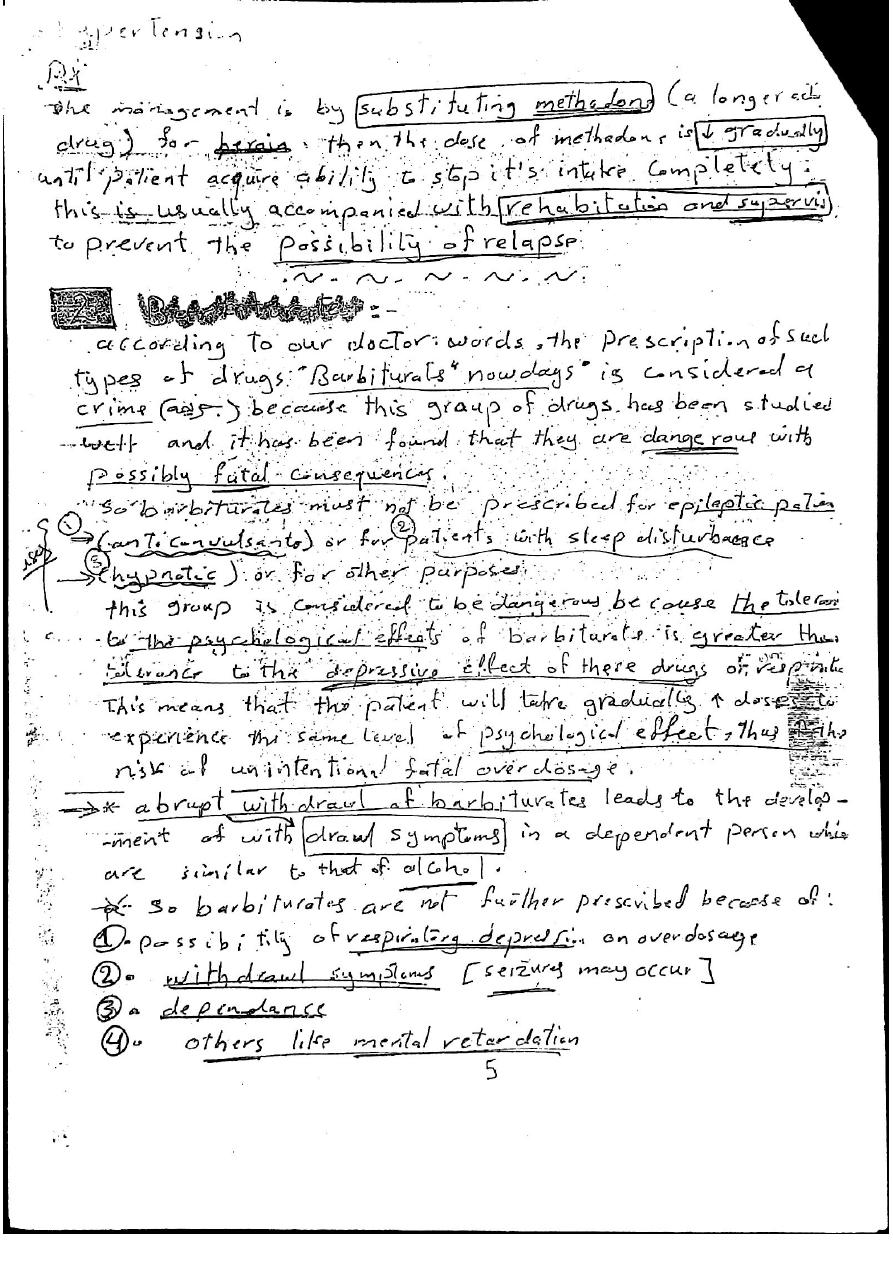 hypertension
Rx
The management is by substituting methadone (a longer act
drug) for heroin, then the dose of methadone is ↓ gradually
until patient acquire ability to stop it's intake completely.
this is usually accompanied with rehabitation and supervis
to prevent the possibility of relapse.
2 Barbiturates :-
according to our doctor words, the prescription of such
types of drugs "Barbiturats" nowdays" is considered a
crime because this group of drugs has been studied
well and it has been found that they are dangerous with
possibly fatal consequences.
so barbiturates must not be prescribed for epileptic patien
① (anticonvulsants) or for ② patients with sleep disturbance
uses ③ (hypnotic) or for other purposes.
this group is considered to be dangerous because the toleran
to the psychological effects of barbiturats is greater than
tolerance to the depressive effect of these drugs on respiratio
This means that the patient will take gradually ↑ doses to
experience the same level of psychological effect, thus ↑ the
risk of unintentional fatal overdosage.
→* abrupt withdrawl of barbiturates leads to the develop-
-ment of withdrawl symptoms in a dependent person whic
are similar to that of alcohol.
* so barbiturates are not further prescribed because of :
①. possibitity of respiratory depression on overdosage
②. withdrawl symptoms [seizures may occur]
③. dependance
④. others like mental retardation
5